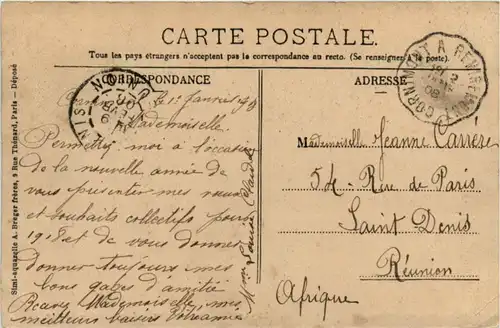 CARTE POSTALE.
Tous les pays étrangers n'acceptent pas la correspondance au recto. (Se renseigner à la poste).
CORRESPONDANCE
ADRESSE
CORNIMONT A REMIREMONT
le 1er Janvier
Mademoiselle,
Permettez moi à l'occasion
de la nouvelle année de
vous présenter mes vœux
et souhaits collectifs pour
1908 et de vous donner
donner toujours mes
bons gages d'amitié
Recevez Mademoiselle, mes
meilleurs baisers Votre amie
Mademoiselle Jeanne Carrère
54 - Rue de Paris
Saint Denis
Réunion
Afrique
Simi-aquarelle A. Breger frères, 9 Rue Thénard, Paris — Déposé